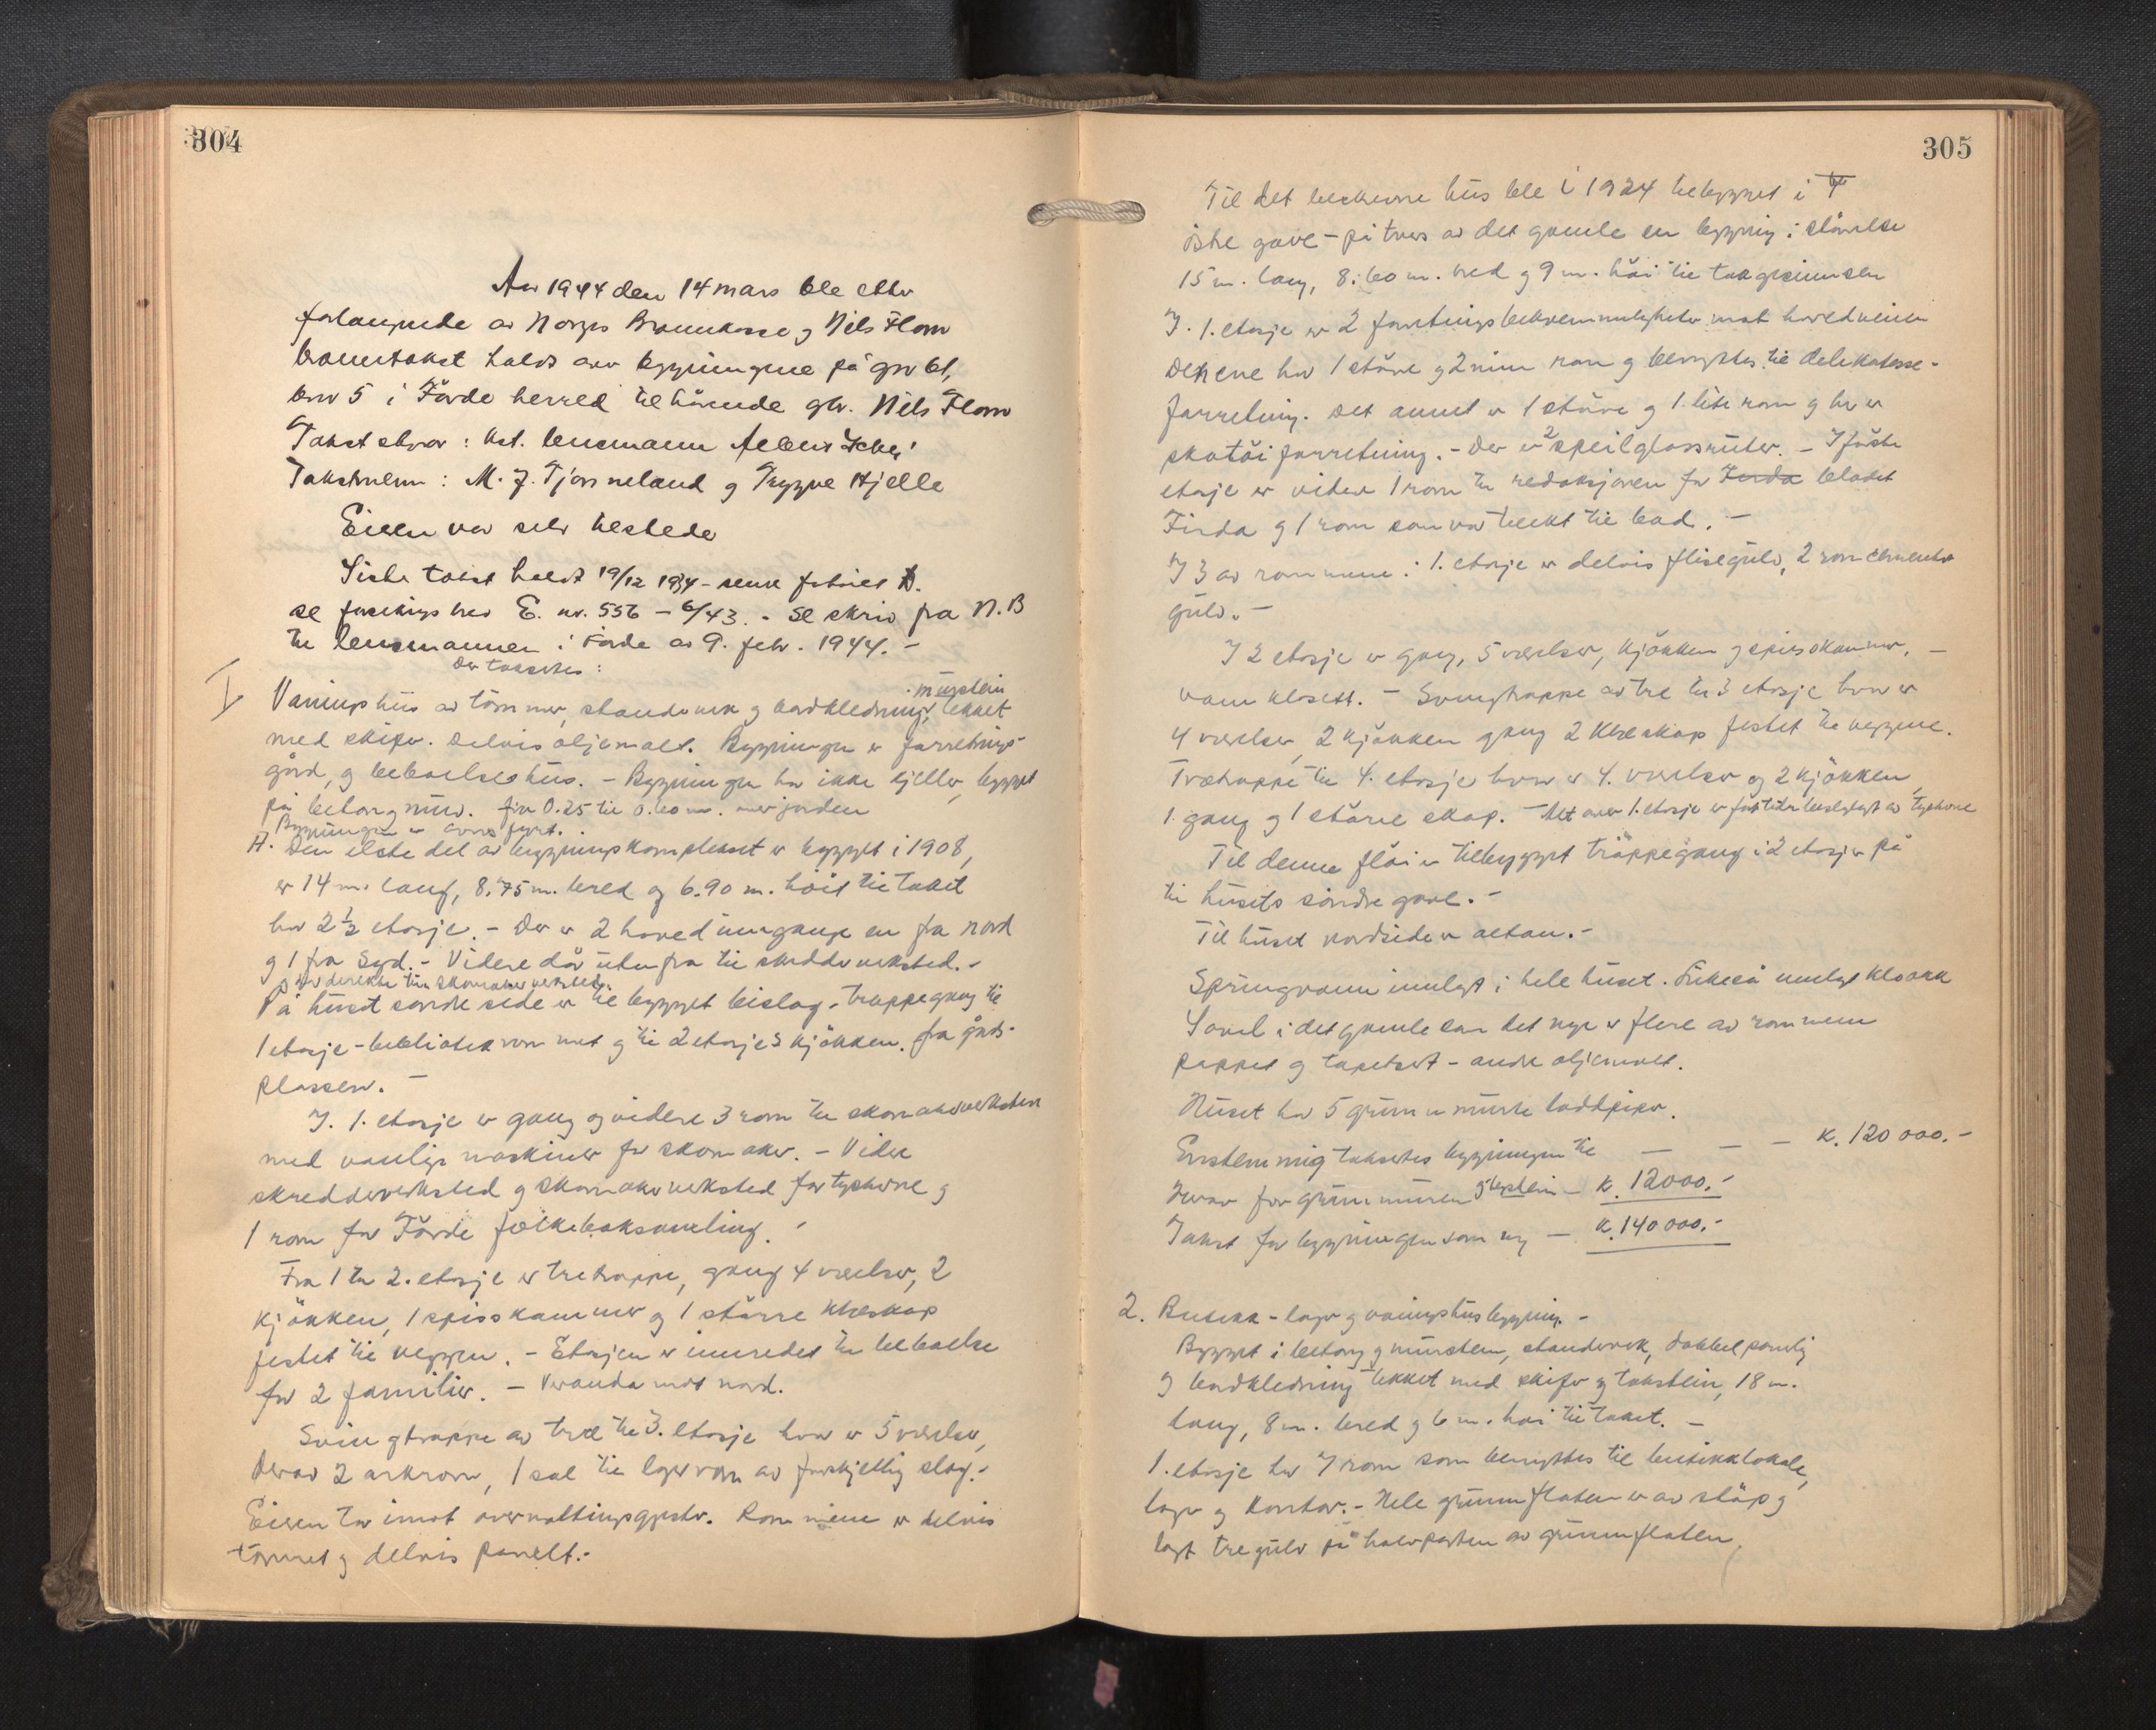 304
År 1944 den 14 mars ble etter
forlangende av Norges Brannkasse og Nils Flom
branntakst holdt over bygningene på gnr 61,
bnr 5 i Förde herred tilhörende gbr. Nils Flom
Takstbestyrer: kst. lensmann
Takstmenn: M. J. Tjönneland og Trygve Hjelle
Eieren var selv tilstede
Siste takst holdt 19/12 1934 - senere
se forsikrings brev E. nr. 556 - 6/43. - Se skriv fra N.B
til lensmannen i Förde av 9. febr. 1944. -
Der takseres:
I Våningshus av tömmer, standverk og bordkledning, murstein tekket
med skifer. Delvis oljemalt. Bygningen er forretnings-
gård, og beboelseshus. - Bygningen har ikke kjeller, bygget
på betongmur. fra 0.25 til 0.60 m. over jorden
Bygningen er
A. Den elste del av bygningskomplekset er bygget i 1908,
er 14 m. lang, 8.75 m. bred og 6.90 m. höit til taket
har 2 1/2 etasje. - Der er 2 hovedinngange en fra nord
og 1 fra Syd. - Videre dör utenfra til skredderverksted. -
og dör direkte til skomakerverksted.
På huset söndre side er tilbygget bislag - trappegang til
1 etasje - bibliotekrommet og til 2 etasjes kjökken. fra gårds-
plassen. -
I. 1. etasje er gang og videre 3 rom til skomakerverksted
med vanlige maskiner for skomaker. - Videre
skredderverksted og skomakerverksted for tyskerne og
1 rom for Förde folkeboksamling.
Fra 1 til 2. etasje er tretrappe, gang 4 værelser, 2
kjökken, 1 spisskammer og 1 större klæskap
festet til veggen. - Etasjen er innredet til beboelse
for 2 familier. - Veranda mot nord.
Svingtrappe av træ til 3. etasje hvor er 5 værelser,
derav 2 arkrom, 1 sal til lagerrom av forskjellig slag. -
Eieren tar imot overnattingsgjester. Rommene er delvis
tömret og delvis panelt. -
305
Til det beskrevne hus ble i 1924 tilbygget i
östre gavl - på tvers av det gamle en bygning i störrelse
15 m. lang, 8.60 m. bred og 9 m. höi til takgesimsen
I. 1. etasje er 2 forretningsbekvemmeligheter mot hovedveien
Den ene har 1 större og 2 minn rom og benyttes til delikatesse-
forretning. Det annet er 1 större og 1 lite rom og her er
skotöiforretning. - Der er 2 speilglassruter. - I förste
etasje er videre 1 rom til redaksjonen for Firda bladet
Firda og 1 rom som var tenkt til bad. -
I 3 av rommene i 1. etasje er delvis flisegulv, 2 rom cementert
gulv. -
I 2 etasje er gang, 5 værelser, kjökken og spisskammer, -
vann klosett. - Svingtrappe av tre til 3 etasje hvor er
4 værelser, 2 kjökken gang 2 klæskap festet til veggene.
Trætrappe til 4. etasje hvor er 4. værelser og 2 kjökken,
1. gang og 1 större skap. - Alt over 1. etasje er for tiden beslaglagt av tyskerne
Til denne flöi er tilbygget trappegang i 2 etasjer på
til husets söndre gavl. -
Til huset nordside er altan. -
Springvann innlagt i hele huset. Likeså innlagt kloakk
Såvel i det gamle som det nye er flere av rommene
pappet og tapetsert - andre oljemalt.
Huset har 5 grunn murte loddpiper.
Enstemmig takseres bygningen til — — — K. 120 000. -
Herav for grunnmuren og teglstein - K. 12000. -
Takst for bygningen som ny — K. 140 000. -
2. Butikk - lager og våningshusbygning. -
Bygget i betong og murstein, standverk, dobbel paneling
og bordkledning tekket med skifer og takstein, 18 m.
lang, 8 m. bred og 6 m. höi til taket. -
1. etasje har 7 rom som benyttes til butikklokale,
lager og kontor. - Hele grunnflaten er av stöp og
lagt tregulv på halvparten av grunnflaten,